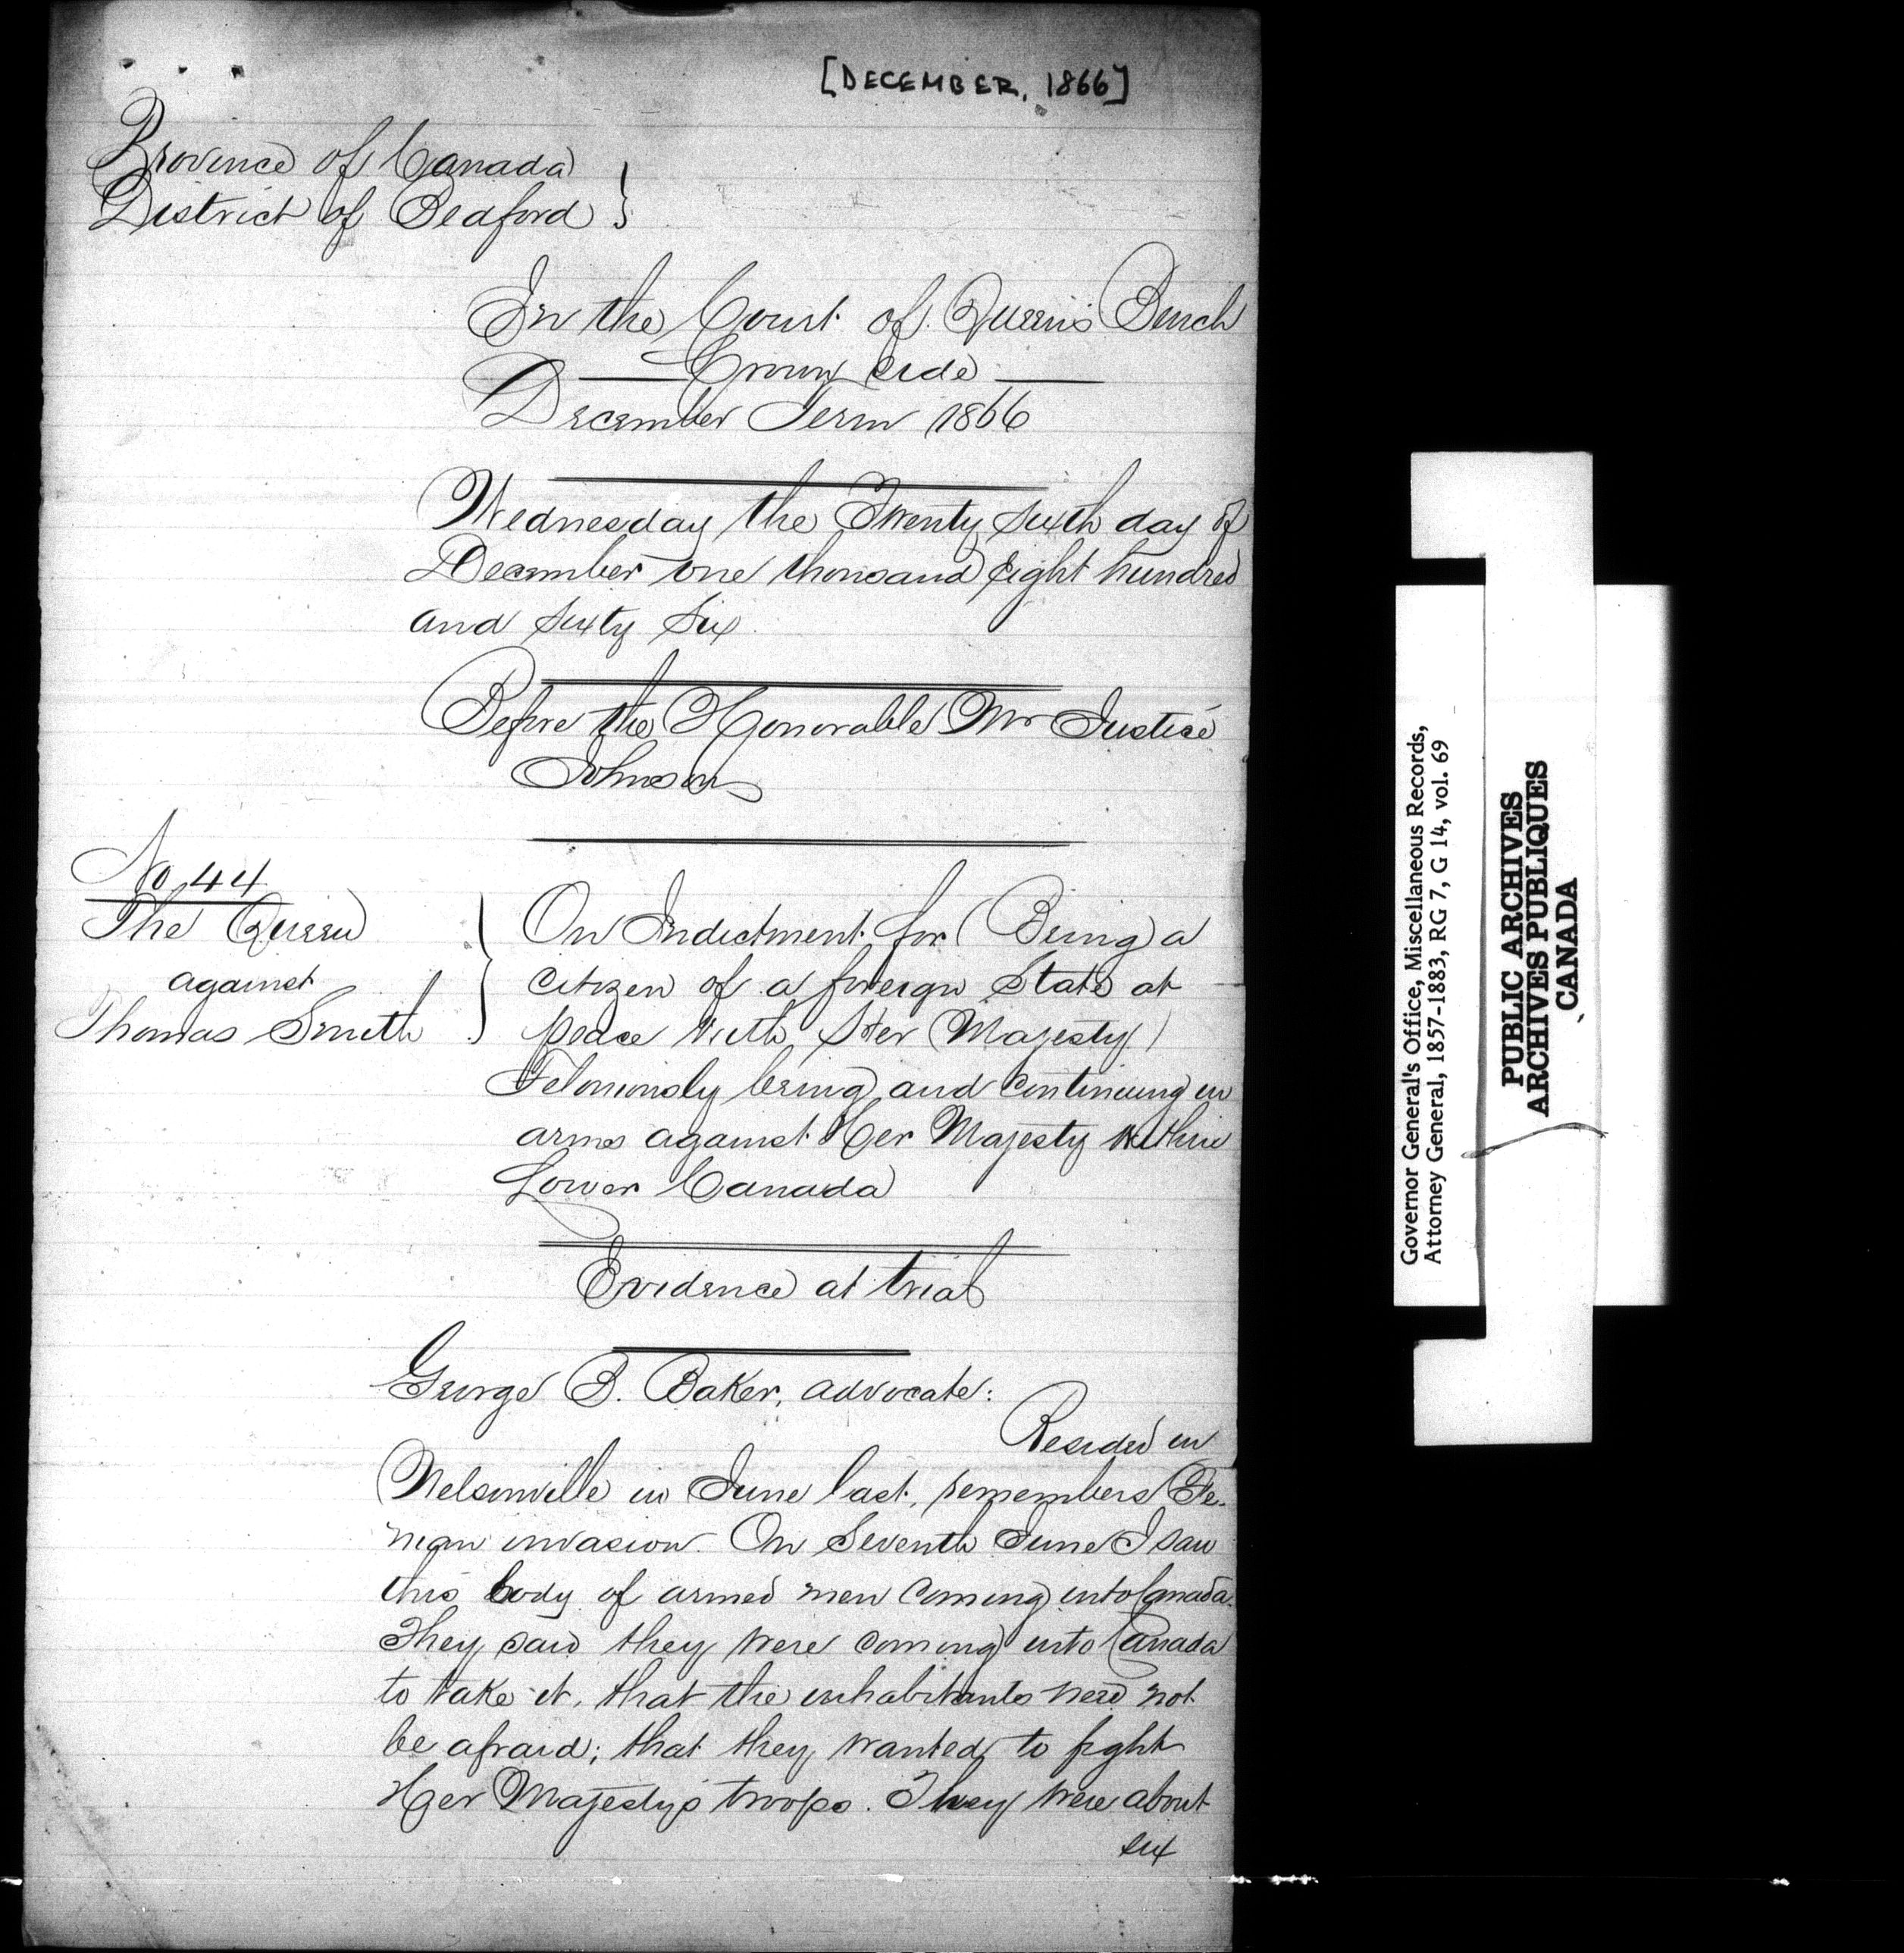 [DECEMBER, 1866]
Province of Canada
District of Bedford }
In the Court of Queen's Bench
Crown Side
December Term 1866
Wednesday the Twenty sixth day of
December one thousand Eight hundred
and sixty six
Before the Honorable Mr Justice
Johnson
No 44
The Queen
against
Thomas Smith
On Indictment for (Being a
citizen of a foreign State at
peace with Her Majesty)
Feloniously being and continuing in
arms against Her Majesty within
Lower Canada
Evidence at trial
George B. Baker, advocate:
Resided in
Nelsonville in June last, remembers Fe-
nian invasion. On Seventh June I saw
this body of armed men coming into Canada.
They said they were coming into Canada
to take it, that the inhabitants need not
be afraid; that they wanted to fight
Her Majesty's troops. They were about
six
Governor General's Office, Miscellaneous Records,
Attorney General, 1857-1883, RG 7, G 14, vol. 69
PUBLIC ARCHIVES
ARCHIVES PUBLIQUES
CANADA